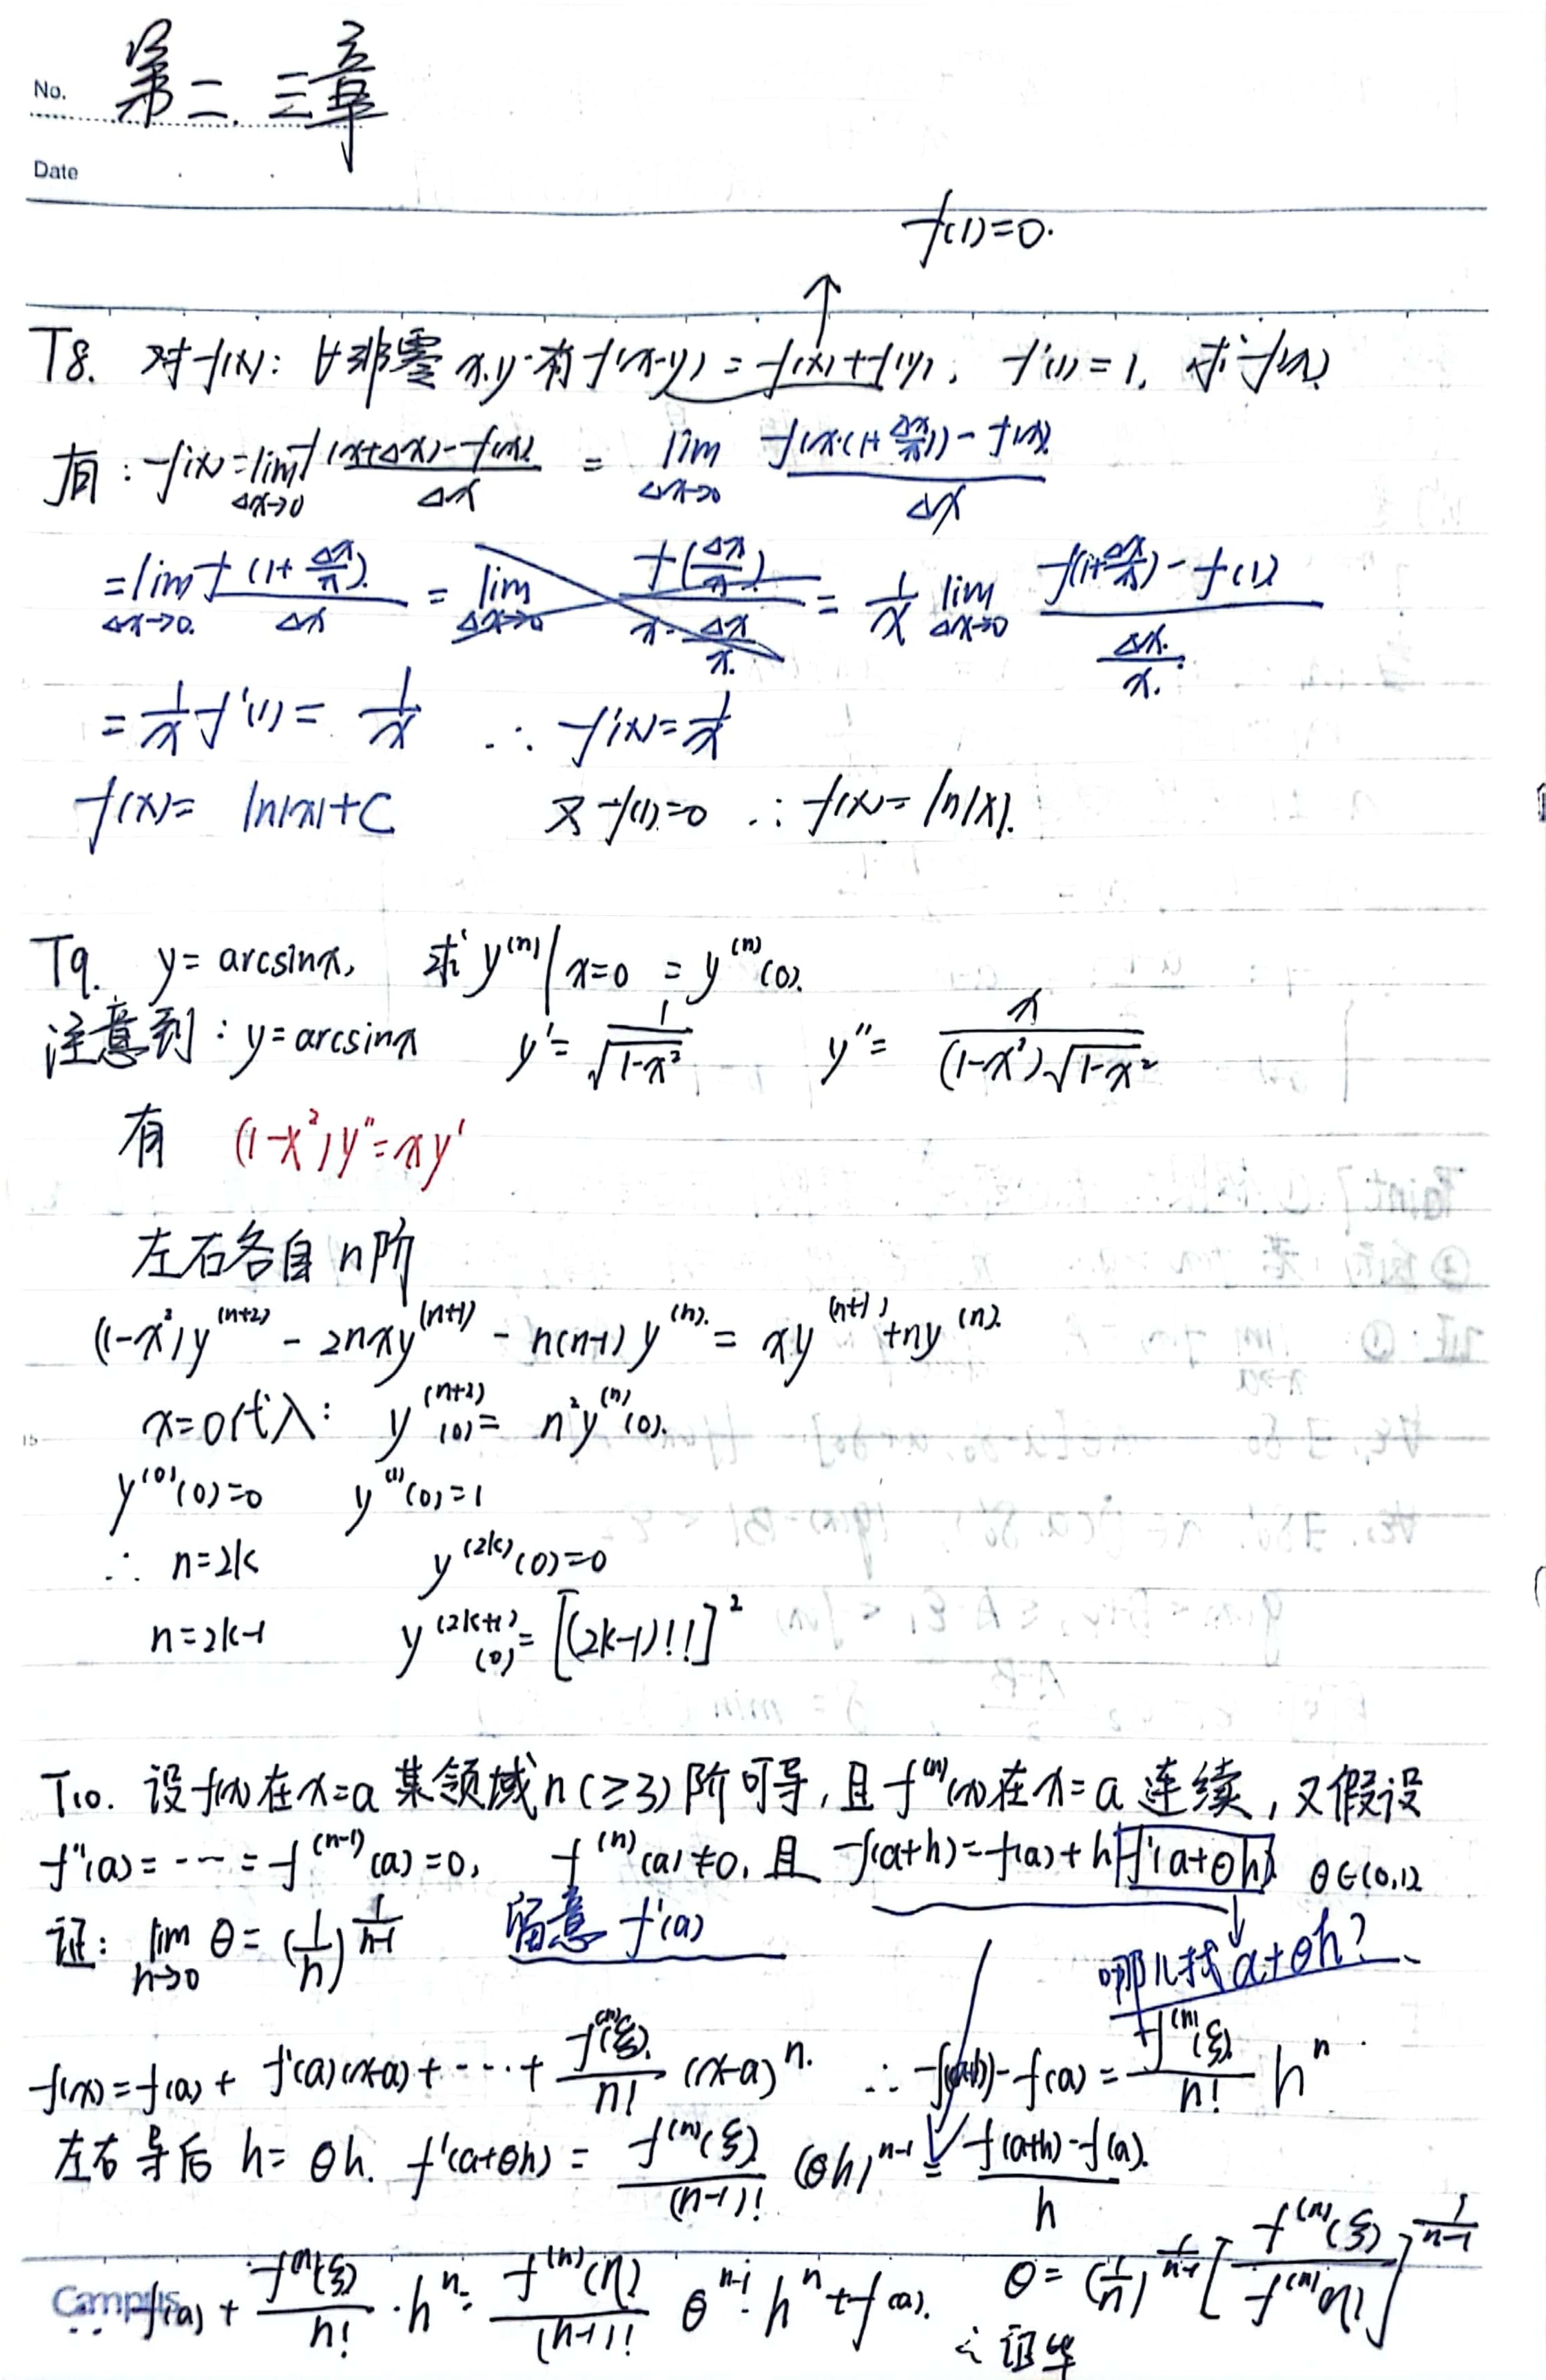 No. 第二.三章
Date
f(1)=0.
T8. 对f(x): ∀非零 x.y.有f(x·y)=f(x)+f(y), f'(1)=1, 求f(x)
有: f'(x)=lim_{Δx→0} \frac{f(x+Δx)-f(x)}{Δx} = lim_{Δx→0} \frac{f(x·(1+\frac{Δx}{x}))-f(x)}{Δx}
=lim_{Δx→0} \frac{f(1+\frac{Δx}{x})}{Δx} = lim_{Δx→0} \frac{f(\frac{Δx}{x})}{x·\frac{Δx}{x}} = \frac{1}{x} lim_{Δx→0} \frac{f(1+\frac{Δx}{x})-f(1)}{\frac{Δx}{x}}
=\frac{1}{x}f'(1)=\frac{1}{x} ∴ f'(x)=\frac{1}{x}
f(x)= ln|x|+C 又f(1)=0 ∴ f(x)=ln|x|.
T9. y=arcsinx, 求 y^{(n)}|x=0 = y^{(n)}(0).
注意到: y=arcsinx y'=\frac{1}{\sqrt{1-x²}} y''=\frac{x}{(1-x²)\sqrt{1-x²}}
有 (1-x²)y''=xy'
左右各自n阶
(1-x²)y^{(n+2)} - 2nxy^{(n+1)} - n(n-1)y^{(n)} = xy^{(n+1)}+ny^{(n)}
x=0代入: y^{(n+2)}(0)= n²y^{(n)}(0).
y^{(0)}(0)=0 y^{(1)}(0)=1
∴ n=2k y^{(2k)}(0)=0
n=2k-1 y^{(2k+1)}(0)=[(2k-1)!!]²
T10. 设f(x)在x=a某领域n(≥3)阶可导,且f^{(n)}(x)在x=a连续,又假设
f''(a)=---=f^{(n-1)}(a)=0, f^{(n)}(a)≠0,且 f(a+h)=f(a)+hf'(a+θh). θ∈(0,1)
证: lim_{h→0} θ=(\frac{1}{n})^{\frac{1}{n-1}} 留意f'(a)
哪儿找a+θh?
f(x)=f(a)+f'(a)(x-a)+----+\frac{f^{(n)}(ξ)}{n!}(x-a)^n. ∴ f(a+h)-f(a)=\frac{f^{(n)}(ξ)}{n!}h^n
左右导后 h=θh. f'(a+θh)=\frac{f^{(n)}(ξ)}{(n-1)!}(θh)^{n-1}=\frac{f(a+h)-f(a)}{h}
Campus
∴ f(a)+\frac{f^{(n)}(ξ)}{n!}·h^n=\frac{f^{(n)}(η)}{(n-1)!}θ^{n-1}·h^n+f(a). θ=(\frac{1}{n})^{\frac{1}{n-1}}[\frac{f^{(n)}(ξ)}{f^{(n)}(η)}]^{\frac{1}{n-1}}
∴证毕